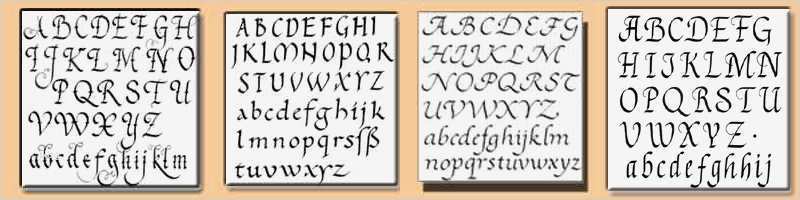 ABCDEFGH
IJKLMNO
PQRSTU
VWXYZ
abcdefghijklm
ABCDEFGHI
JKLMNOPQR
STUVWXYZ
abcdefghijk
lmnopqrsſß
tuvwxyz
ABCDEFG
HIJKLM
NOPQRST
UVWXYZ
abcdefghijklm
nopqrstuvwxyz
ABCDEFG
HIJKLMN
OPQRSTU
VWXYZ·
abcdefghhij